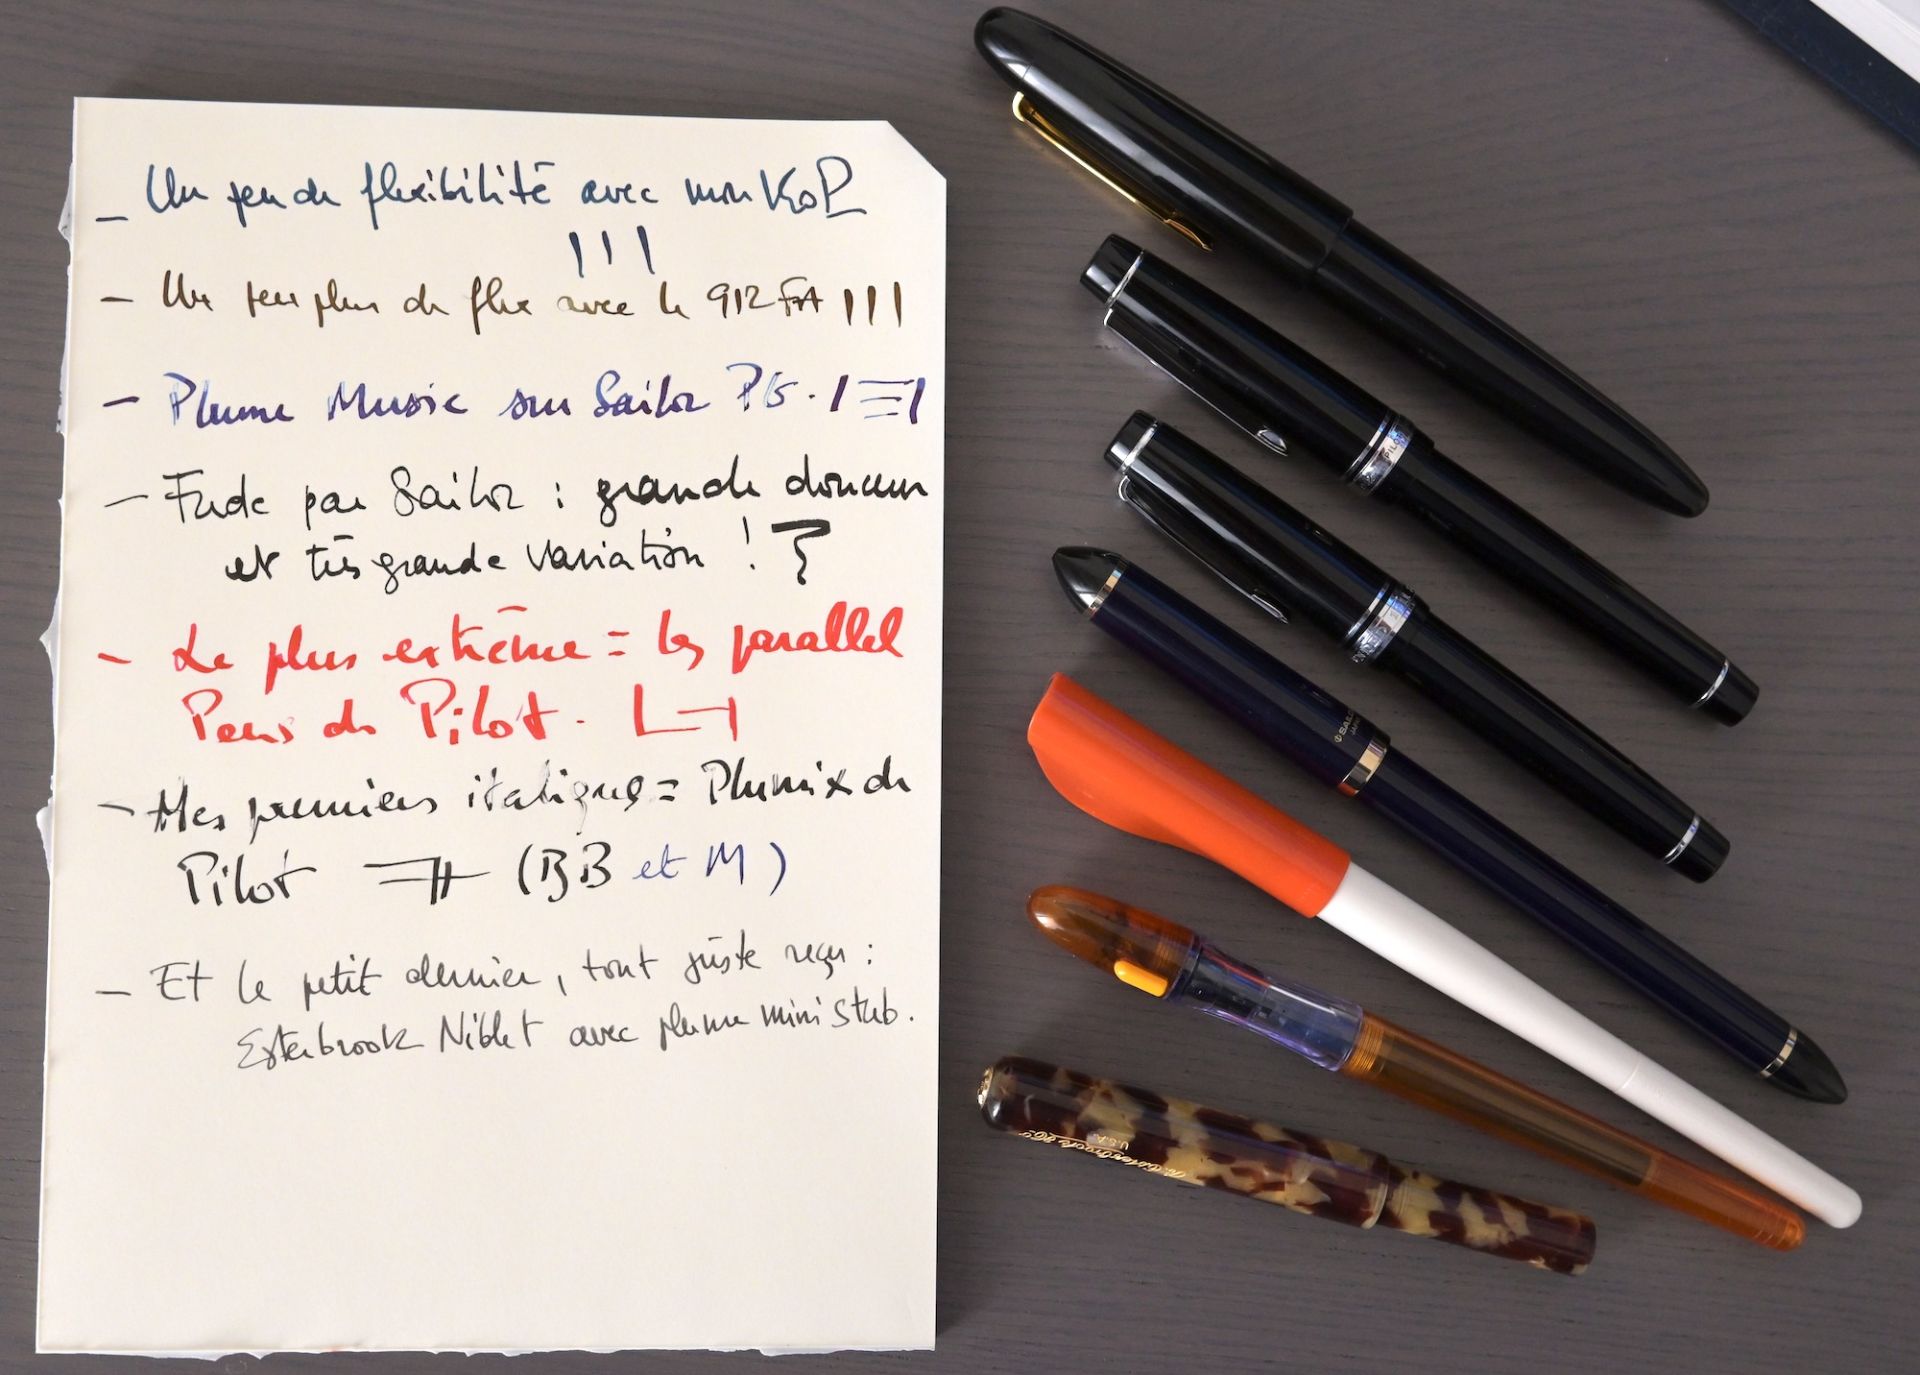 - Un peu de flexibilité avec mon KoP
- Un peu plus de flex avec le 912 FA
- Plume Music sur Sailor PG.
- Fude par Sailor : grande douceur
et très grande variation !
- Le plus extrême = les parallel
Pens de Pilot.
- Mes premiers italiques = Plumix de
Pilot (BB et M)
- Et le petit dernier, tout juste reçu :
Esterbrook Niblet avec plume mini stub.
PILOT
SAILOR
JAPAN
Esterbrook
U.S.A.